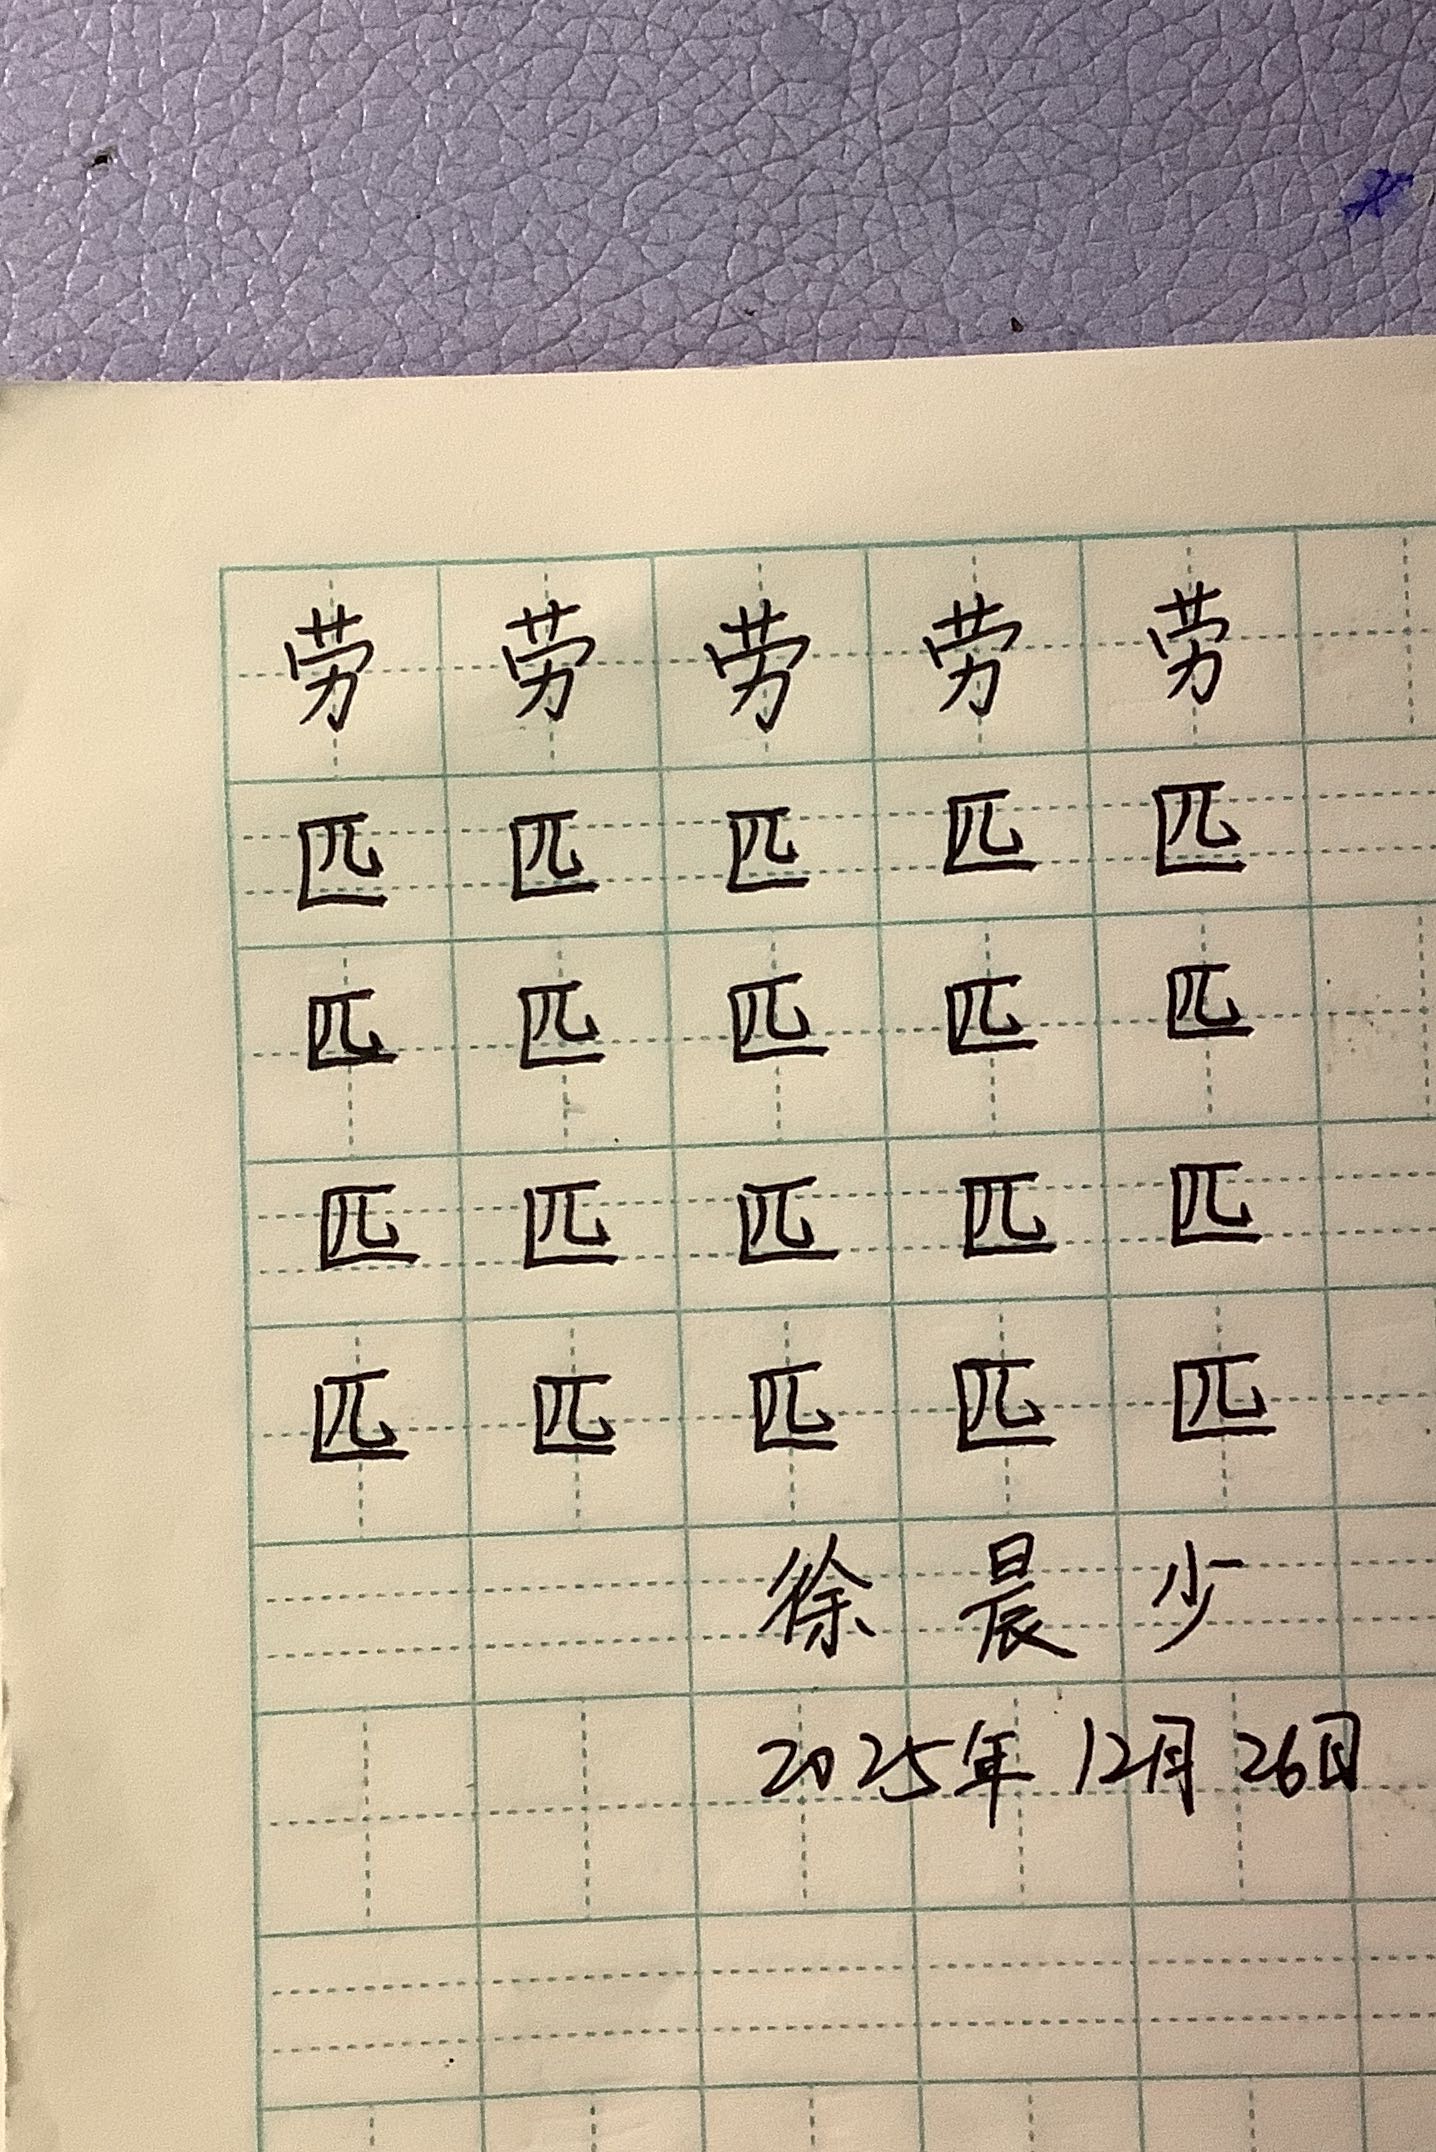 劳 劳 劳 劳 劳
匹 匹 匹 匹 匹
匹 匹 匹 匹 匹
匹 匹 匹 匹 匹
匹 匹 匹 匹 匹
徐 晨 少
2025年 12月 26日